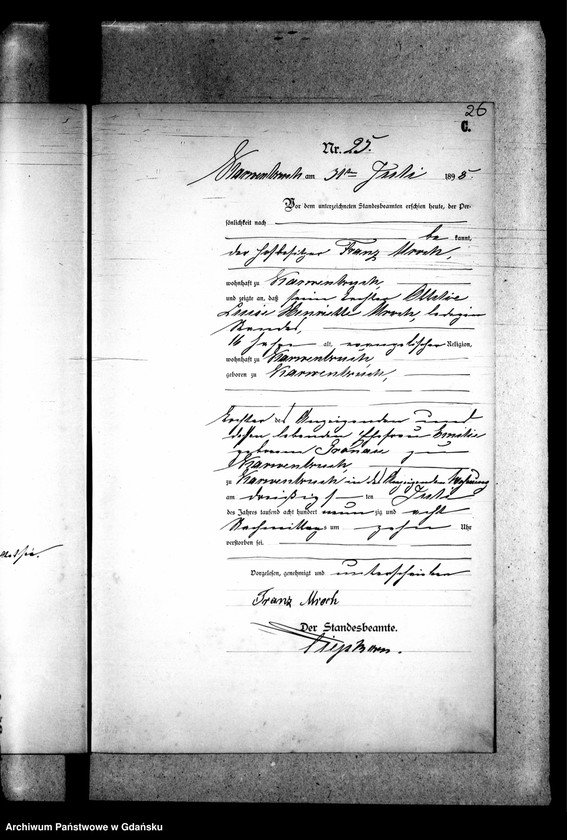 26
C.
Nr. 25.
Karwenbruch am 31ten Juli 1898.
Vor dem unterzeichneten Standesbeamten erschien heute, der Per-
sönlichkeit nach
be kannt,
der Hofbesitzer Franz Mroch,
wohnhaft zu Karwenbruch,
und zeigte an, daß seine Tochter Ottilie
Luise Henriette Mroch, ledigen
Standes,
16 Jahre alt, evangelischer Religion,
wohnhaft zu Karwenbruch
geboren zu Karwenbruch,
Tochter des Anzeigenden und
dessen lebenden Ehefrau Emilie
geborene zu
Karwenbruch,
zu Karwenbruch in des Anzeigenden Wohnung
am dreißigsten Juli
des Jahres tausend acht hundert neunzig und acht
Nachmittags um zehn Uhr
verstorben sei.
Vorgelesen, genehmigt und unterschrieben
Franz Mroch
Der Standesbeamte.
Archiwum Państwowe w Gdańsku